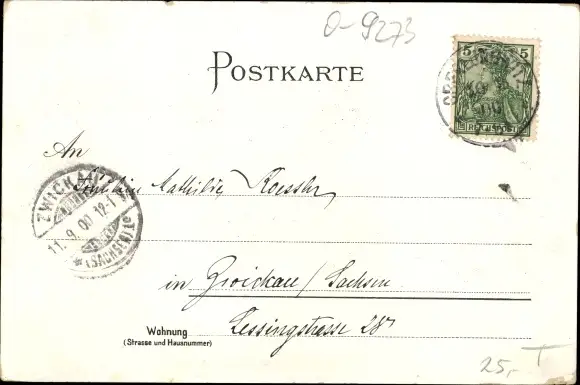 O-9273
5 5
REICHSPOST
POSTKARTE
An
Fräulein Mathilde Roessler
ZWICKAU
11.9.00.12-1
(SACHSEN)
in Zwickau/Sachsen
Wohnung
(Strasse und Hausnummer)
Lessingstrasse 28
25,- T